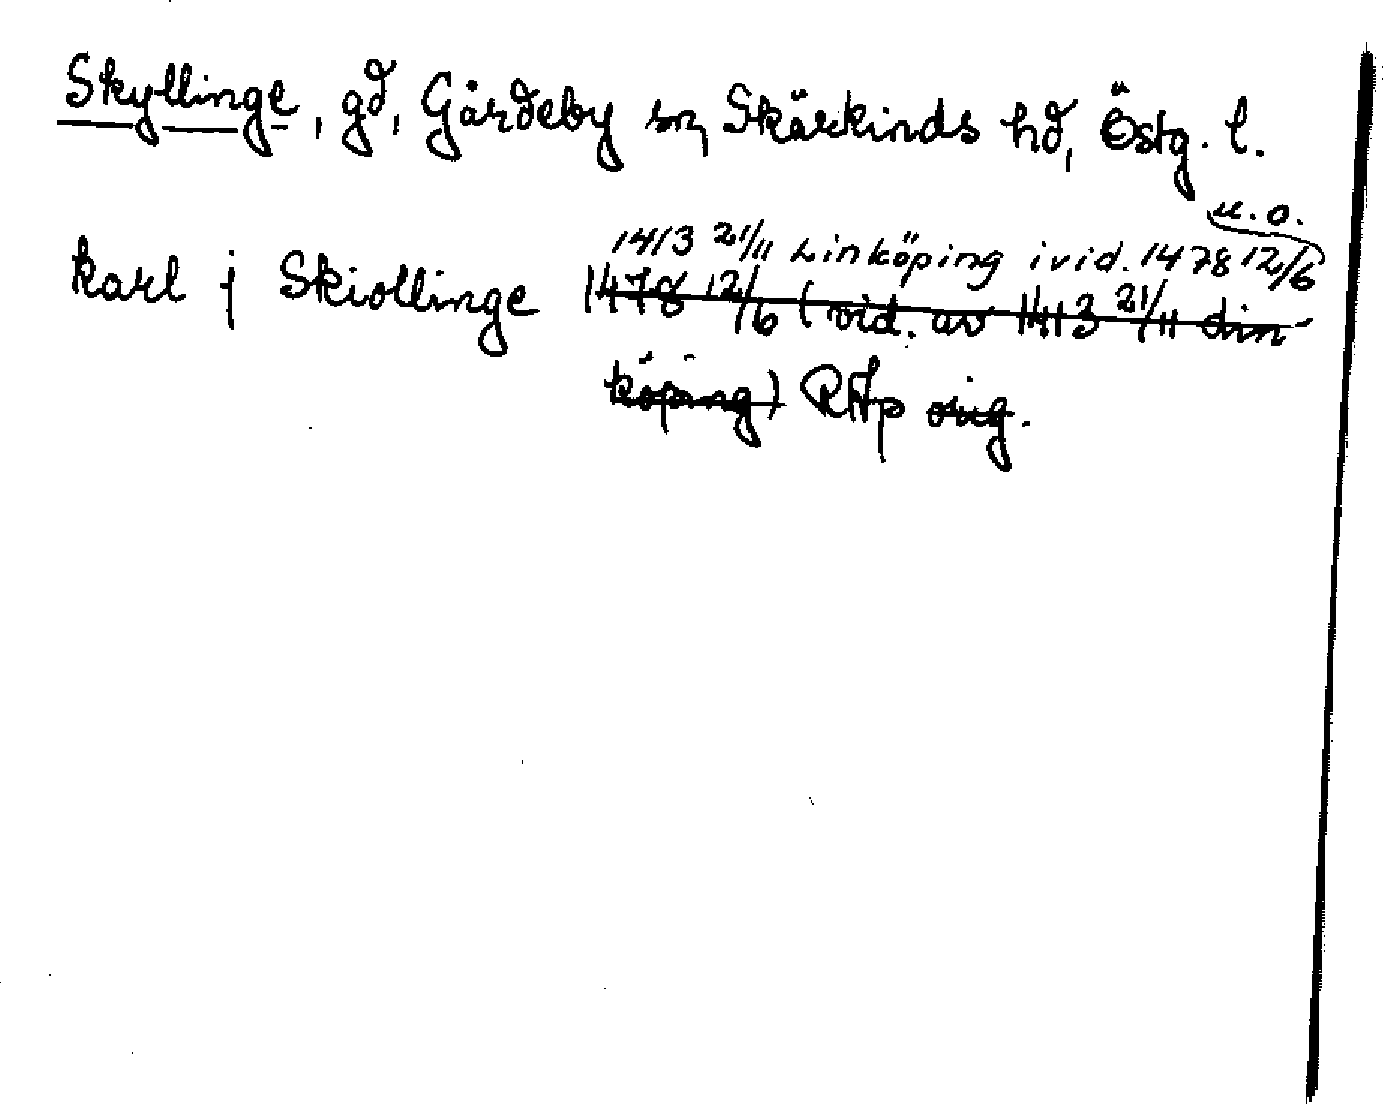 Skyllinge, gd, Gårdeby sn, Skärkinds hd, Östg. l.
u. o.
1413 21/11 Linköping i vid. 1478 12/6
karl j Skiollinge 1478 12/6 (vid. av 1413 21/11 Lin-
köping) RAp orig.